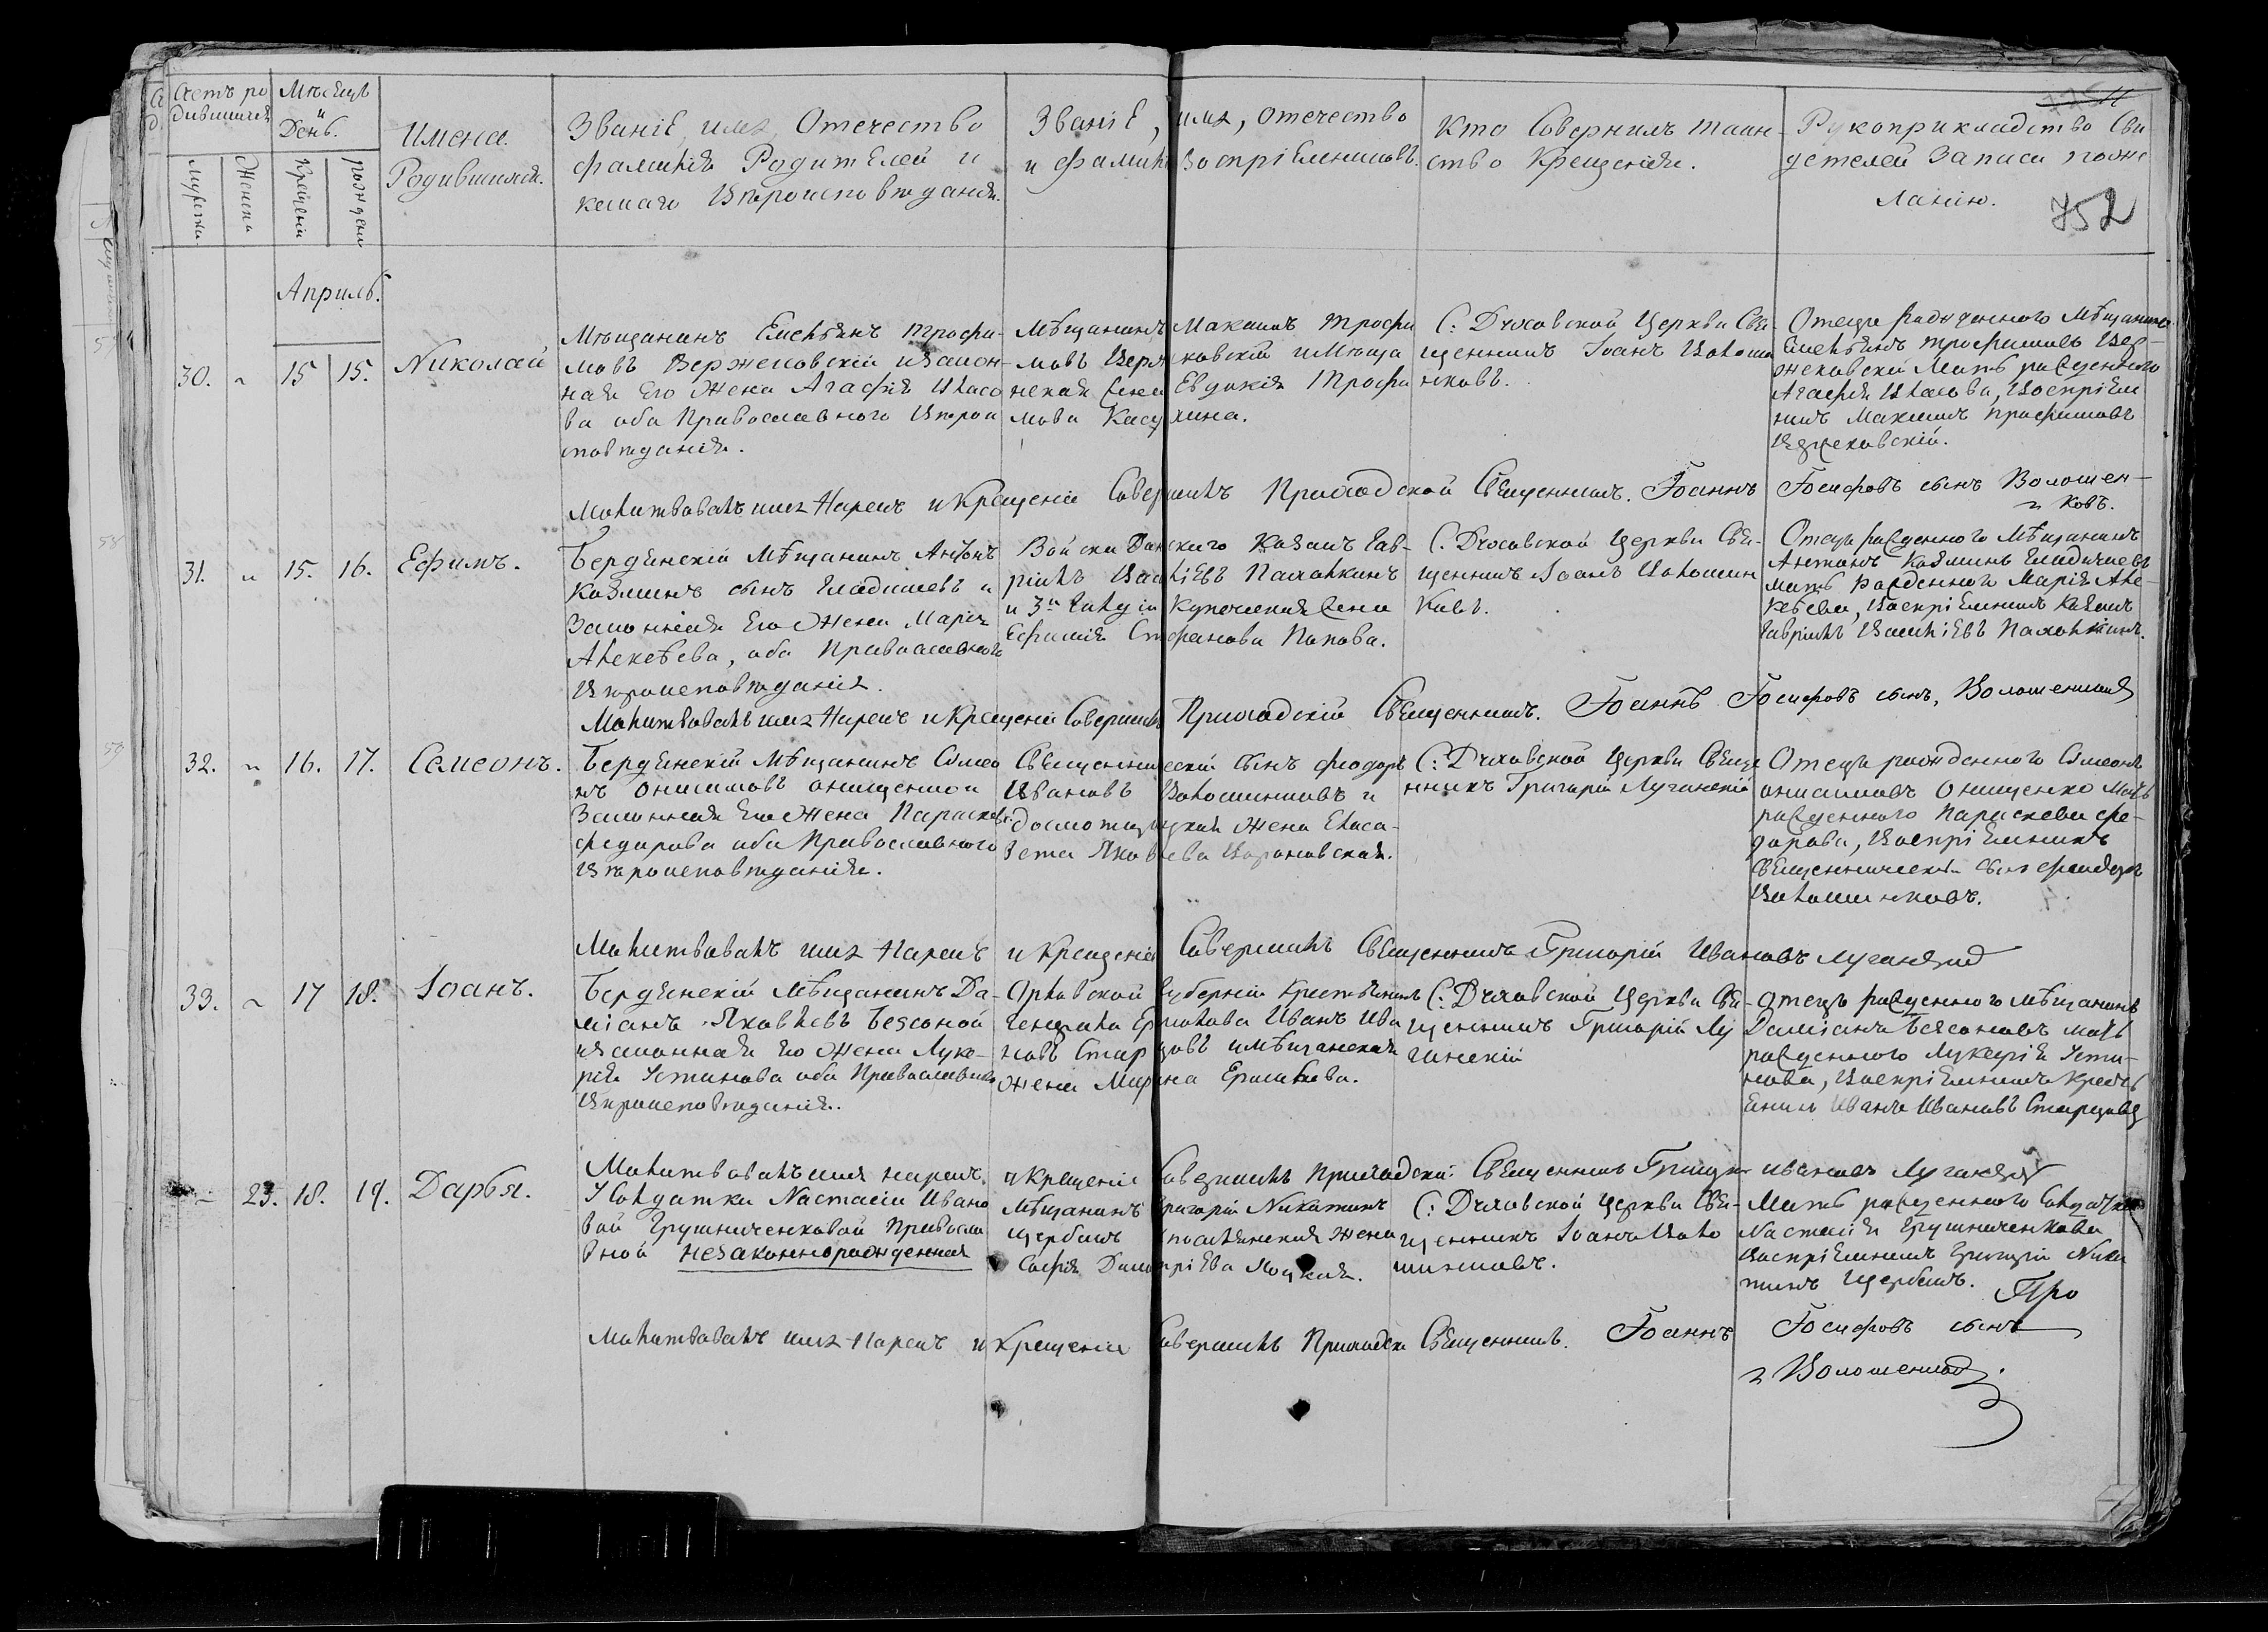 Счетъ ро
дившихся
Мѣсяцъ
и
День.
Мужска
Женска
Крещенія
рожденія
Имена
Родившихся.
Званіе, имя, Отечество
фамилія Родителей и
какого Вѣроисповѣданія.
Званіе, имя, отечество
и фамилія Воспріемниковъ.
Кто Совершилъ таин-
ство Крещенія.
Рукоприкладство Сви
детелей Записи по же
ланію.
752
Апрѣль.
30. " 15 15.
Николай
Мѣщанинъ Емельянъ Трофи-
мовъ Вержековскій и закон-
ная Его Жена Агафія Власо
ва оба Православного Вѣрои
сповѣданія.
Мѣщанинъ Максимъ Трофи
мовъ Вержековскій и Мѣща
нская Евдокія Трофи
мова
С: Церкви Свя-
щенникъ Іоанъ Волоше
нковъ.
Отецъ рожденного Мѣщанинъ
Емельянъ Трофимовъ Вер-
жековскій Мать рожденного
Агафія Власова, Воспріем
никъ Максимъ Трофимовъ
Вержековскій.
Молитвовалъ имя Нарекъ и Крещеніе Совершилъ Приходской Священникъ. Іоаннъ Іосифовъ сынъ Волошен-
ковъ.
31. " 15. 16.
Ефимъ.
Бердянскій Мѣщанинъ Антонъ
Козминъ сынъ Гладишевъ и
Законная Его Жена Марія
Алексѣева, оба Православного
Вѣроисповѣданія.
Войска Донскаго Козакъ Гав-
рілъ Василіевъ Палонкинъ
и 3й Гилдіи Купеческая
Ефимія Стефанова Попова.
С. Церкви Свя-
щенникъ Іоанъ Волошин
ковъ.
Отецъ рожденного Мѣщанинъ
Антонъ Козминъ Гладишевъ
мать рожденного Марія Але-
ксѣева, Воспріемникъ Казакъ
Гаврілъ Василіевъ Палонкинъ.
Молитвовалъ имя Нарекъ и Крещеніе Совершилъ Приходскій Священникъ. Іоаннъ Іосифовъ сынъ, Волошенковъ
32. " 16. 17.
Семеонъ.
Бердянскій Мѣщанинъ Симео
нъ Онисимовъ Онищенко и
Законная Его Жена Параскева
Федорова оба Православного
Вѣроисповѣданія.
Священническій Сынъ Феодоръ
Ивановъ Волошинковъ и
жена Елиса-
вета Яковлева Вороновская.
С: Церкви Священ
нникъ Григорій Луганскій
Отецъ рожденного Симеонъ
Онисимовъ Онищенко Мать
рожденного Параскева Фе-
дорова, Воспріемникъ
Священническій Сынъ Феодоръ
Волошинковъ.
Молитвовалъ имя Нарекъ и Крещеніе Совершилъ Священникъ Григорій Ивановъ Луганскій
33. " 17 18.
Іоанъ.
Бердянскій Мѣщанинъ Да-
міанъ Яковлевъ Безсоной
и законная Его Жена Луке-
рія Устинова оба Православного
Вѣроисповѣданія.
Орловской Губерніи Крестьянинъ
Генерала Ермолова Иванъ Ива
новъ Старцовъ и мѣщанская
жена Марина Ермолаева.
С: Церкви Свя-
щенникъ Григорій Лу
ганскій
Отецъ рожденного мѣщанинъ
Даміанъ Безсоновъ мать
рожденного Лукерія Усти-
нова, Воспріемникъ Кресть
янинъ Иванъ Ивановъ Старцовъ
Молитвовалъ имя нарекъ и Крещеніе Совершилъ Приходскій Священникъ Григорій Ивановъ Луганскій
– 23. 18. 19.
Дарья.
У Солдатки Настасіи Ивано
вой Грушниченковой Правосла
вной незаконнорожденная
Мѣщанинъ Григорій Никитинъ
Щербакъ жена
Софія Димитріева
С: Церкви Свя-
щенникъ Іоанъ Воло
шинковъ.
Мать рожденного Солдатка
Настасія Грушниченкова
Воспріемникъ Григорій Ники
тинъ Щербакъ.
Молитвовалъ имя Нарекъ и Крещеніе Совершилъ Приходскій Священникъ. Іоаннъ Іосифовъ сынъ
Волошенковъ.